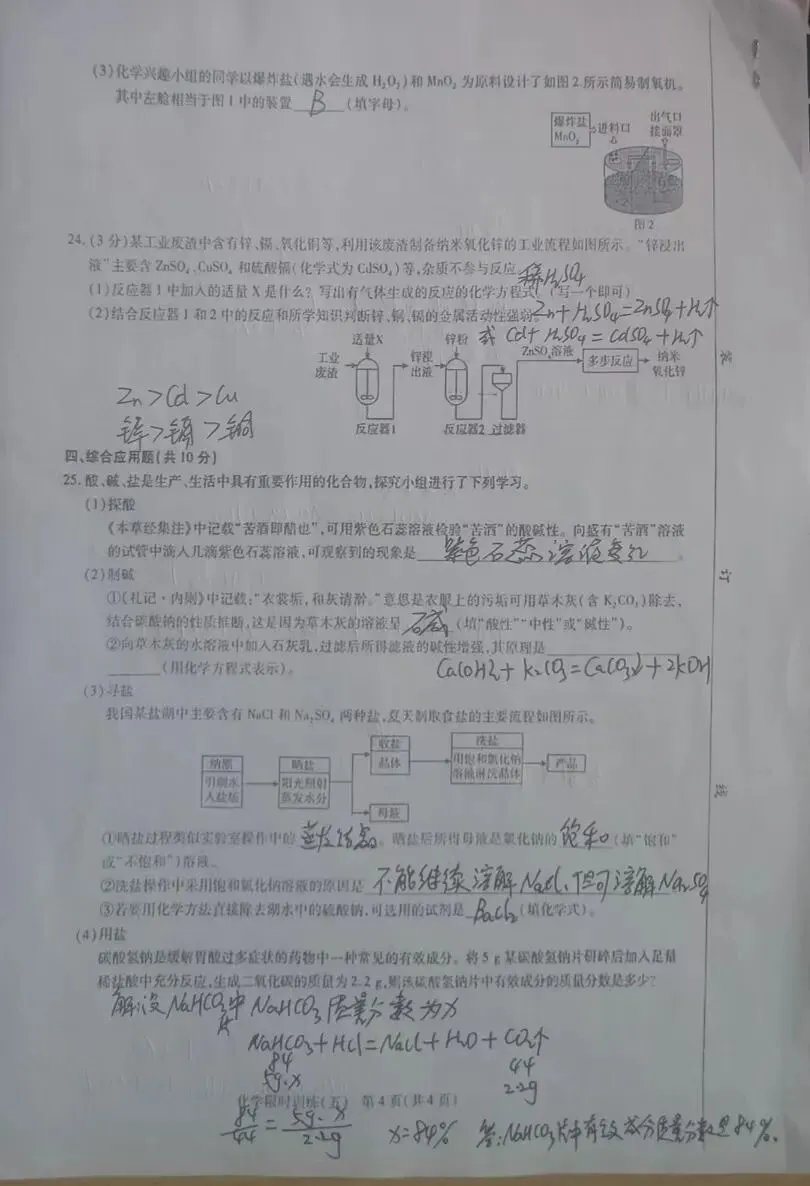 (3)化学兴趣小组的同学以爆炸盐(遇水会生成H₂O₂)和MnO₂为原料设计了如图2所示简易制氧机。
其中左舱相当于图1中的装置 B (填字母)。
爆炸盐
MnO₂
进料口
出气口
接面罩
图2
24.(3分)某工业废渣中含有锌、镉、氧化铜等,利用该废渣制备纳米氧化锌的工业流程如图所示。“锌浸出
液”主要含ZnSO₄、CuSO₄和硫酸镉(化学式为CdSO₄)等,杂质不参与反应。
稀H₂SO₄
(1)反应器1中加入的适量X是什么?写出有气体生成的反应的化学方程式。(写一个即可)
Zn+H₂SO₄=ZnSO₄+H₂↑
(2)结合反应器1和2中的反应和所学知识判断锌、铜、镉的金属活动性强弱。
或 Cd+H₂SO₄=CdSO₄+H₂↑
适量X
锌粉
ZnSO₄溶液
工业
废渣
锌浸
出液
多步反应
纳米
氧化锌
反应器1
反应器2
过滤器
Zn>Cd>Cu
锌>镉>铜
四、综合应用题(共10分)
25.酸、碱、盐是生产、生活中具有重要作用的化合物,探究小组进行了下列学习。
(1)探酸
《本草经集注》中记载“苦酒即醋也”,可用紫色石蕊溶液检验“苦酒”的酸碱性。向盛有“苦酒”溶液
的试管中滴入几滴紫色石蕊溶液,可观察到的现象是 紫色石蕊溶液变红 。
(2)制碱
①《礼记·内则》中记载:“衣裳垢,和灰请澣。”意思是衣服上的污垢可用草木灰(含K₂CO₃)除去,
结合碳酸钠的性质推断,这是因为草木灰的溶液呈 碱性 (填“酸性”“中性”或“碱性”)。
②向草木灰的水溶液中加入石灰乳,过滤后所得滤液的碱性增强,其原理是
(用化学方程式表示)。
Ca(OH)₂+K₂CO₃=CaCO₃↓+2KOH
(3)寻盐
我国某盐湖中主要含有NaCl和Na₂SO₄两种盐,夏天制取食盐的主要流程如图所示。
纳潮
引湖水
入盐场
晒盐
阳光照射
蒸发水分
收盐
晶体
母液
洗盐
用饱和氯化钠
溶液淋洗晶体
产品
①晒盐过程类似实验室操作中的 蒸发结晶 。晒盐后所得母液是氯化钠的 饱和 (填“饱和”
或“不饱和”)溶液。
②洗盐操作中采用饱和氯化钠溶液的原因是 不能继续溶解NaCl、但可溶解Na₂SO₄
③若要用化学方法直接除去湖水中的硫酸钠,可选用的试剂是 BaCl₂ (填化学式)。
(4)用盐
碳酸氢钠是缓解胃酸过多症状的药物中一种常见的有效成分。将5g某碳酸氢钠片研碎后加入足量
稀盐酸中充分反应,生成二氧化碳的质量为2.2g,则该碳酸氢钠片中有效成分的质量分数是多少?
解:设NaHCO₃片中NaHCO₃质量分数为x
NaHCO₃+HCl=NaCl+H₂O+CO₂↑
84 44
5g·x 2.2g
化学限时训练(五) 第4页(共4页)
84/44=5g·x/2.2g x=84% 答:NaHCO₃片中有效成分质量分数是84%.
装
订
线